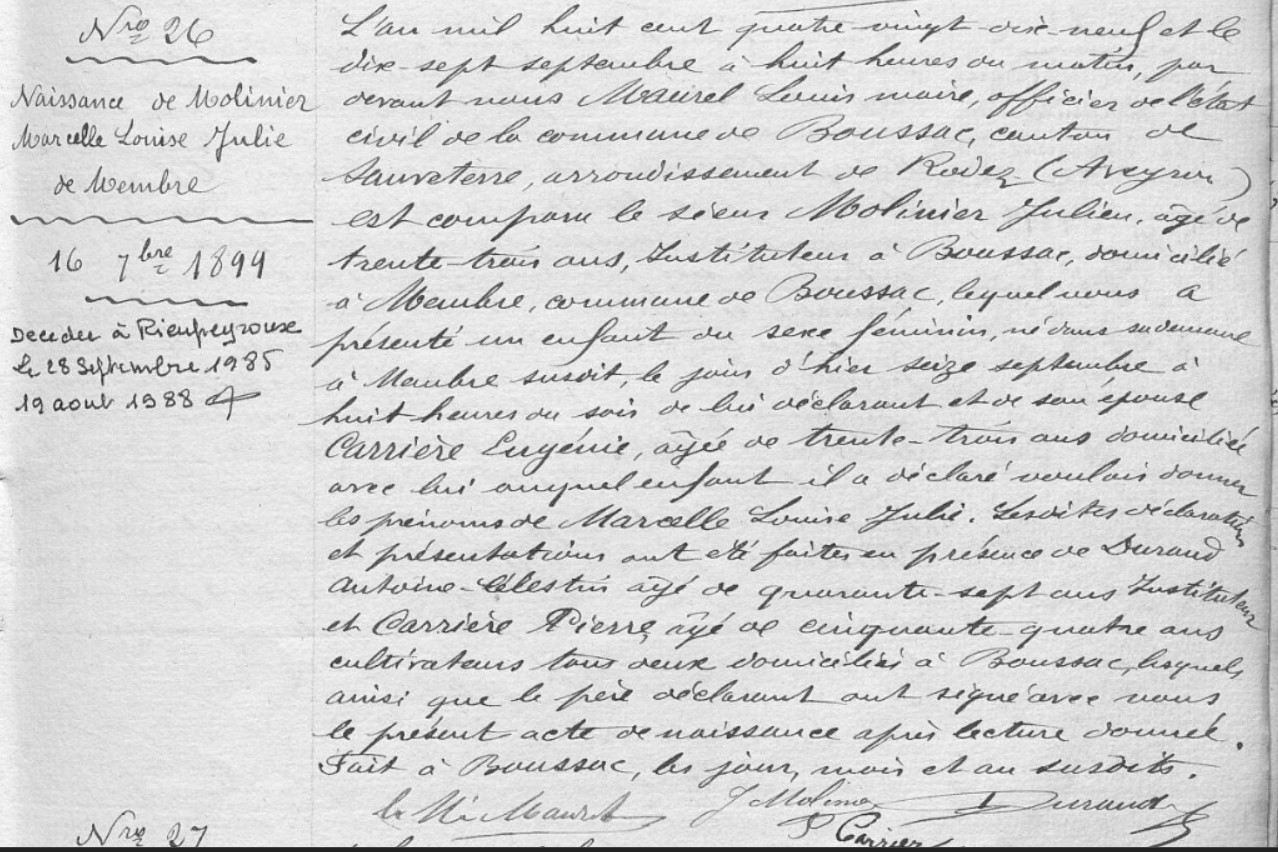 Nro 26
Naissance de Molinier
Marcelle Louise Julie
de Membre
16 7bre 1899
Décédée à Rieupeyroux
le 28 Septembre 1985
19 aout 1988
L'an mil huit cent quatre vingt dix-neuf et le
dix-sept septembre à huit heures du matin, par
devant nous Maurel Louis maire, officier de l'état
civil de la commune de Boussac, canton de
Sauveterre, arrondissement de Rodez (Aveyron)
est comparu le sieur Molinier Julien, âgé de
trente-trois ans, Instituteur à Boussac, domicilié
à Membre, commune de Boussac, lequel nous a
présenté un enfant du sexe féminin, né dans sa demeure
à Membre susdit, le jour d'hier seize septembre à
huit heures du soir de lui déclarant et de son épouse
Carrière Eugénie, âgée de trente-trois ans domiciliée
avec lui auquel enfant il a déclaré vouloir donner
les prénoms de Marcelle Louise Julie. Lesdites déclaration
et présentations ont été faites en présence de Durand
Antoine-Célestin âgé de quarante-sept ans Instituteur
et Carrière Pierre, âgé de cinquante-quatre ans
cultivateurs tous deux domiciliés à Boussac, lesquels
ainsi que le père déclarant ont signé avec nous
le présent acte de naissance après lecture donnée.
Fait à Boussac, les jour, mois et an susdits.
le Maurel J Molinier Durand
P Carrier
Nro 27